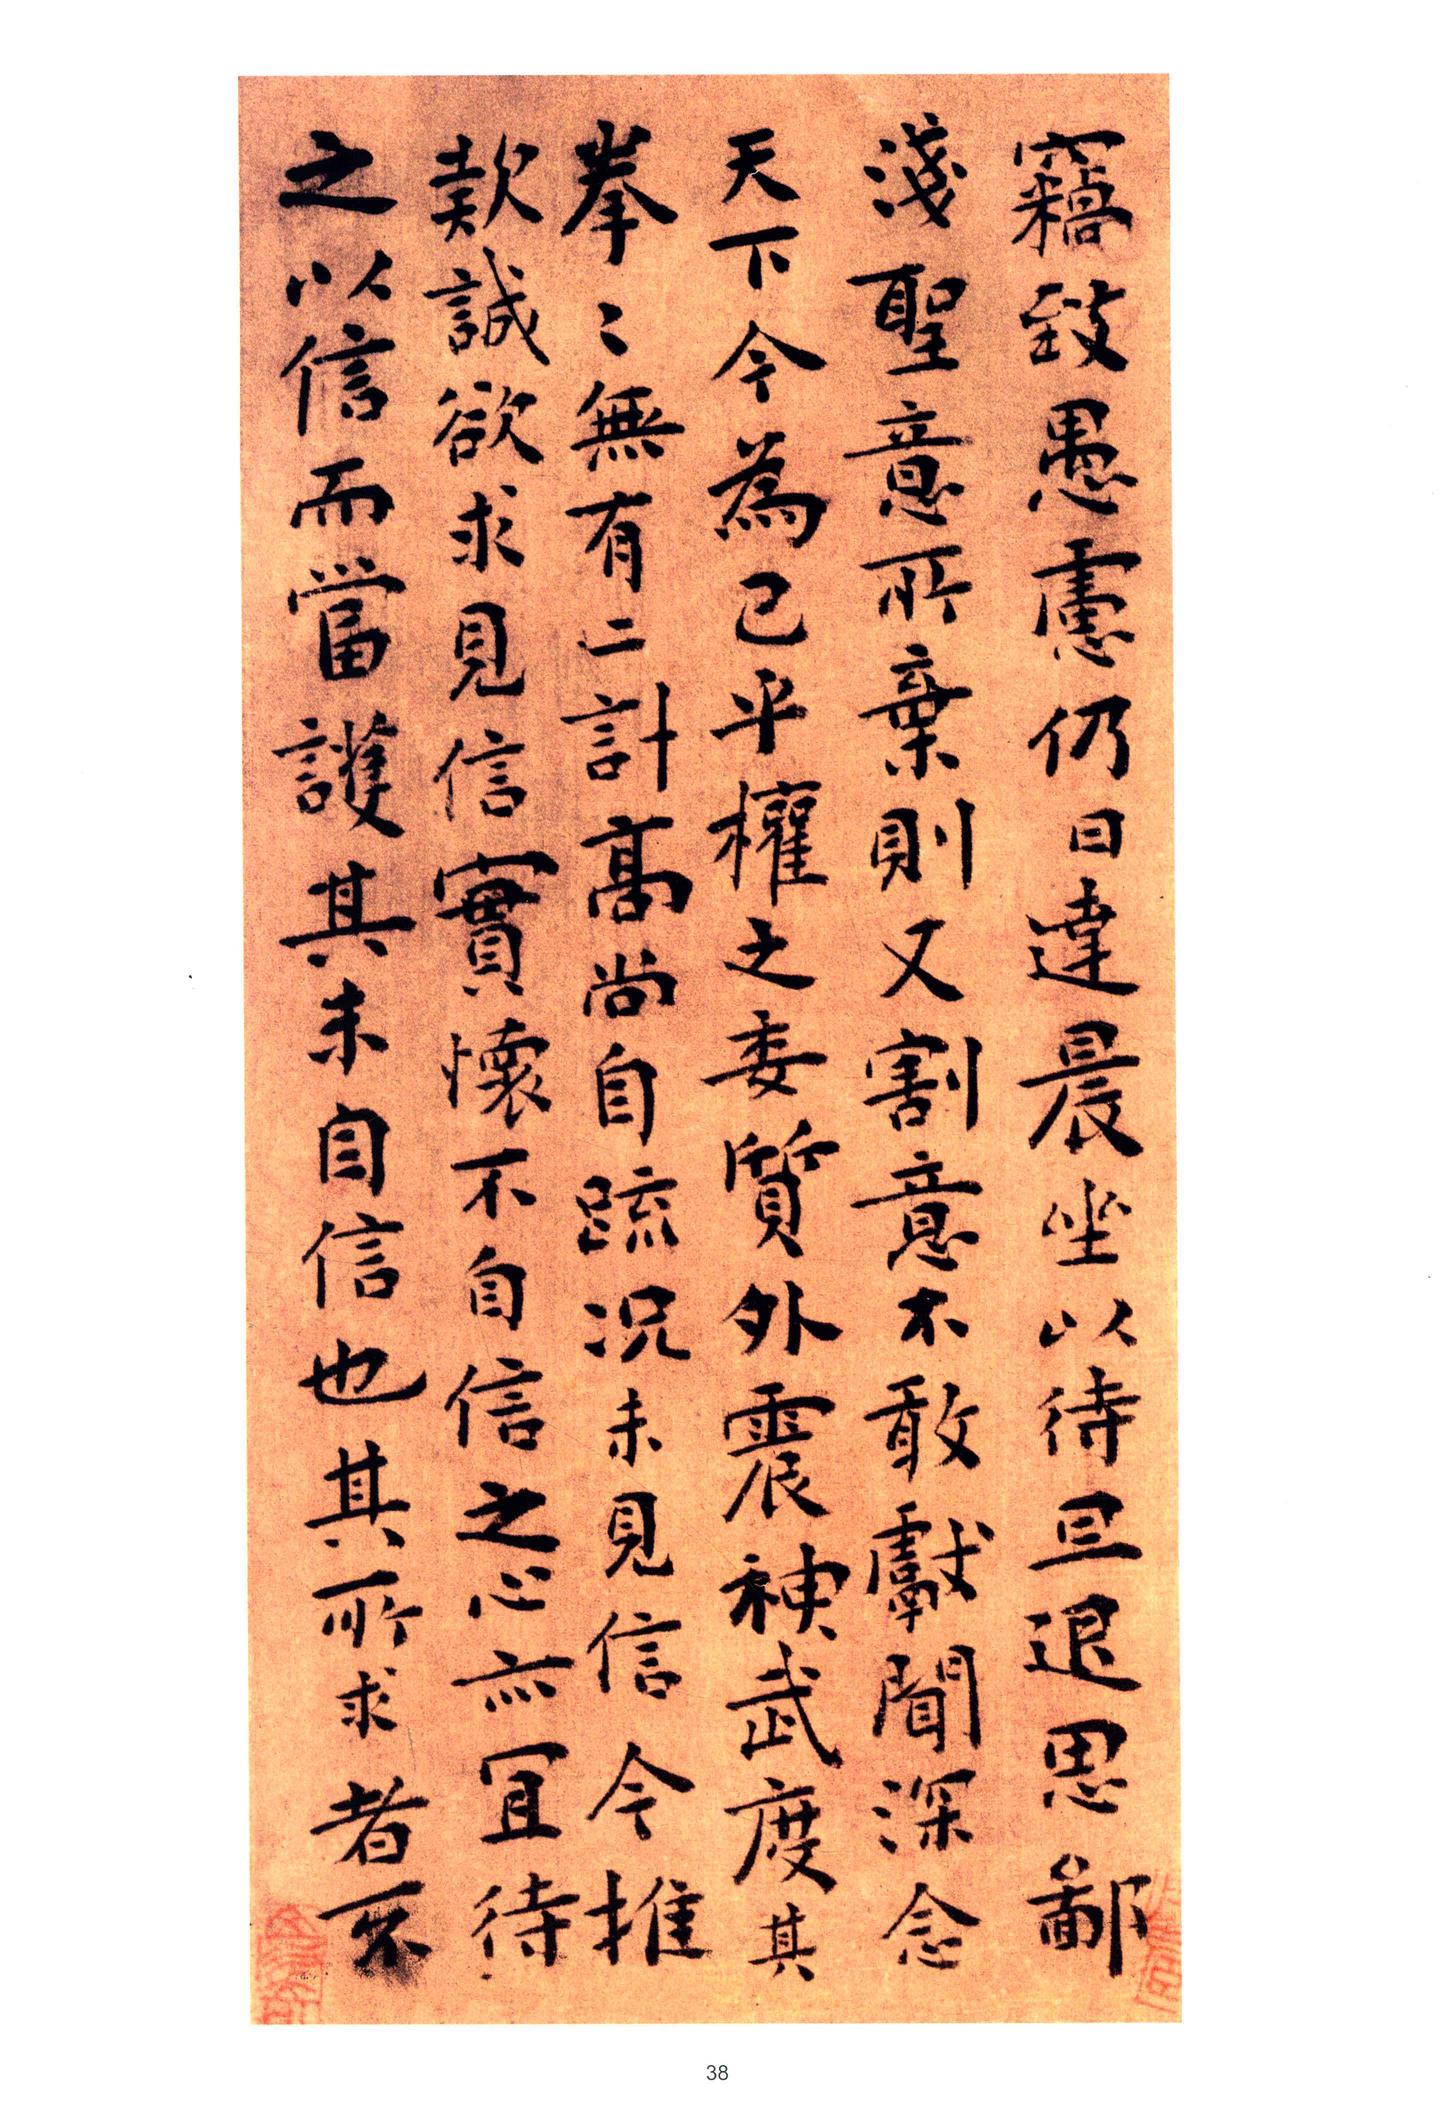 竊致愚慮仍日達晨坐以待旦退思鄙
淺聖意所棄則又割意不敢獻聞深念
天下今為已平權之委質外震神武度其
拳〻無有二計高尚自疏況未見信今推
款誠欲求見信實懷不自信之心亦宜待
之以信而當護其未自信也其所求者不
38